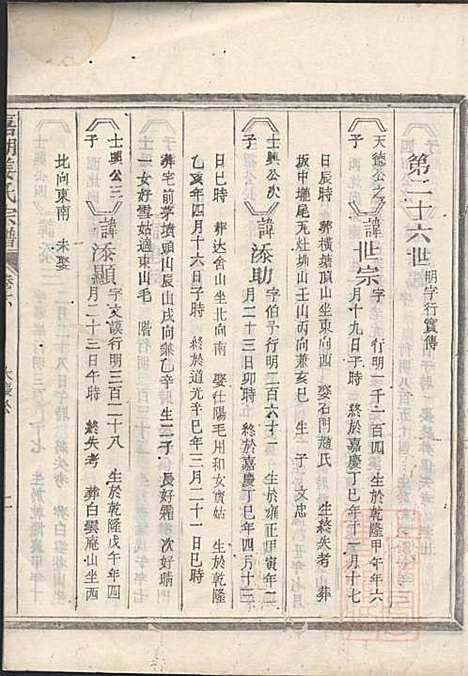 第二十六世 明字行實傳
天德公之子 諱世宗 字 行明一千一百四 生於乾隆甲午年六
月十九日子時 終於嘉慶丁巳年十二月十七
日辰時 葬橫塘頂山坐東向西 娶石門趙氏 生終失考 葬
坂中壠尾元灶埆山壬山丙向兼亥巳 生一子 文忠
士興公次子 諱添助 字伯予行明二百六十一 生於雍正甲寅年二
月二十三日卯時 終於嘉慶丁巳年四月十三
日巳時 葬達舍山坐北向南 娶仕陽毛州和女寶姑 生於乾隆
乙亥年四月十六日子時 終於道光辛巳年三月二十一日巳時
葬宅前茅墳頭山辰山戌向兼乙辛 生二子 長好霜 次好瑞
一女好雪姑適東山毛
士興公三子 諱添顯 字文謨行明三百二十八 生於乾隆戊午年四
月二十三日午時 終失考 葬白雲庵山坐西
北向東南 未娶
姜氏宗譜